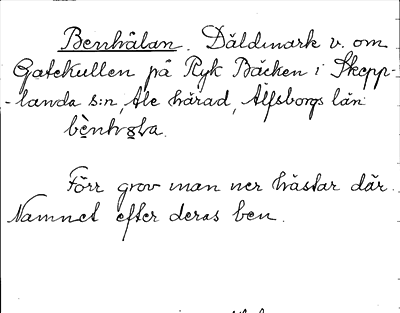 Benhålan. Däldmark v. om
Gatekullen på Ryk Bäcken i Skepp-
-landa s:n, Ale härad, Älfsborgs län

Förr grov man ner hästar där.
Namnet efter deras ben.